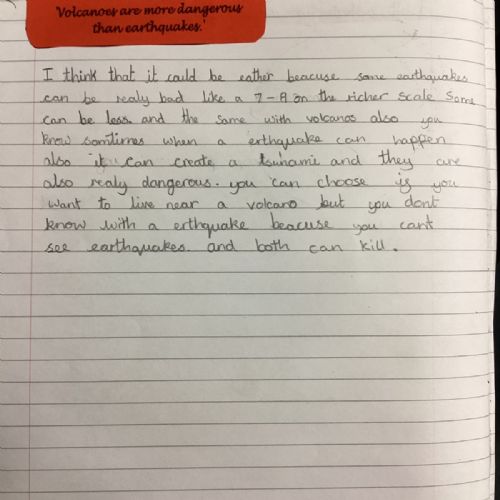 Volcanoes are more dangerous
than earthquakes.
I think that it could be eather beacuse some earthquakes
can be realy bad like a 7-9 on the richer scale some
can be less. and the same with volcanos also you
know somtimes when a erthquake can happen
also it can create a tsunami and they are
also realy dangerous. you can choose if you
want to live near a volcano but you dont
know with a erthquake beacuse you cant
see earthquakes. and both can kill.